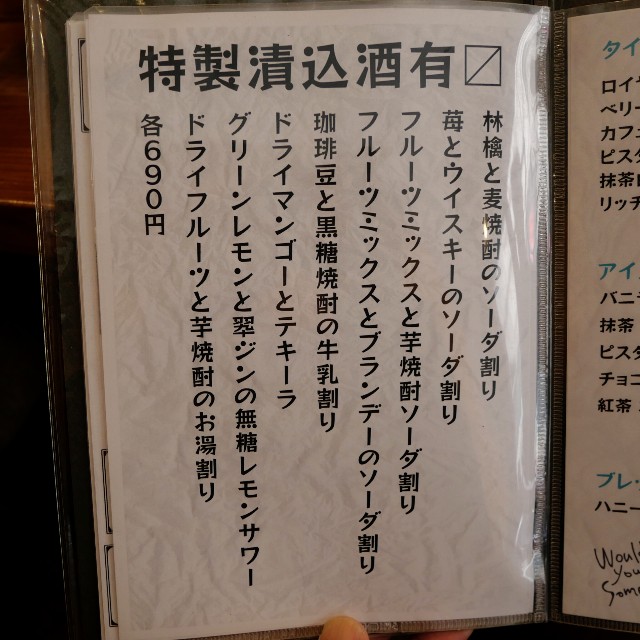 特製漬込酒有〼
林檎と麦焼酎のソーダ割り
苺とウイスキーのソーダ割り
フルーツミックスと芋焼酎ソーダ割り
フルーツミックスとブランデーのソーダ割り
珈琲豆と黒糖焼酎の牛乳割り
ドライマンゴーとテキーラ
グリーンレモンと翠ジンの無糖レモンサワー
ドライフルーツと芋焼酎のお湯割り
各690円
タイ
ロイ
ベリー
カフ
ピスタ
抹茶
リッチ
アイ
バニ
抹茶
ピスタ
チョコ
紅茶
プレ
ハニー
Would
you
Some